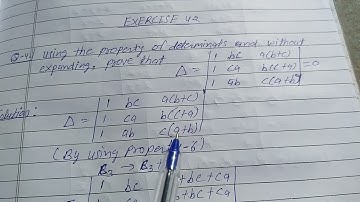 EXERCISE 4.2
Q-4. Using the property of determinats and without
expanding, prove that Δ = | 1 bc a(b+c) |
| 1 ca b(c+a) | = 0
| 1 ab c(a+b) |
Solution:
| 1 bc a(b+c) |
Δ = | 1 ca b(c+a) |
| 1 ab c(a+b) |
(By using Property-6)
+ bc + ca
| 1 bc
+ bc + ca